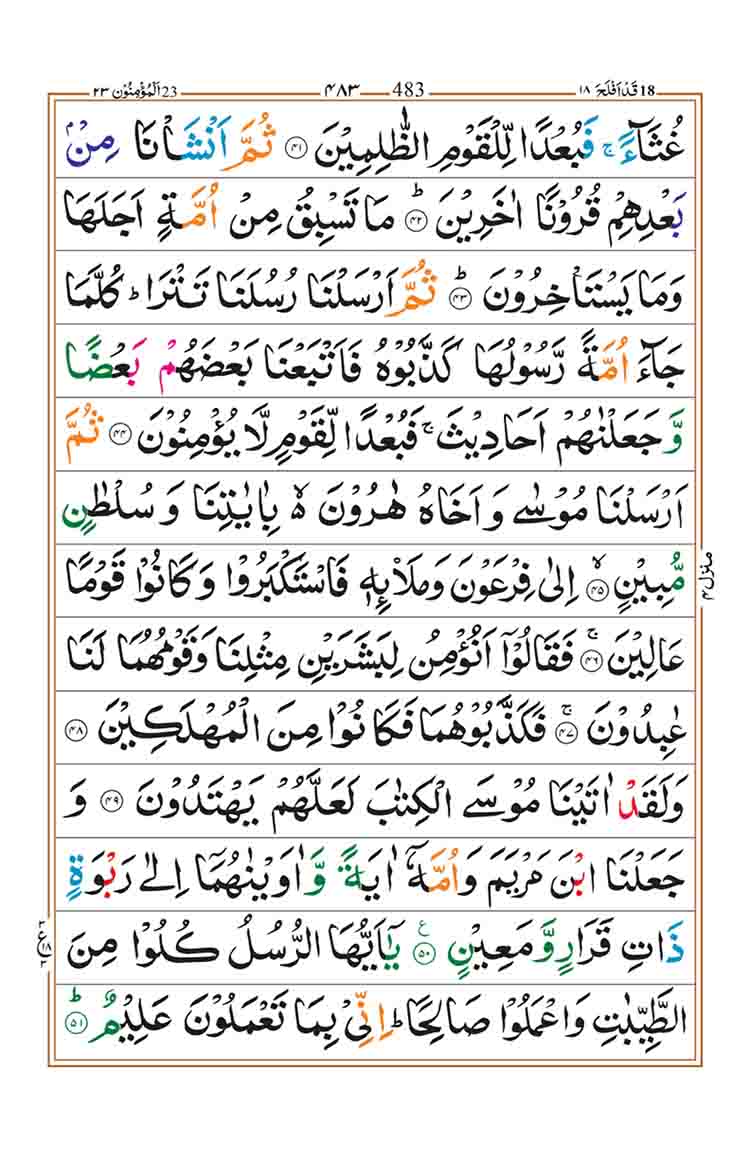 18 قَدْ اَفْلَحَ ١٨ 483 ٤٨٣ 23 اَلْمُؤْمِنُوْن ٢٣
غُثَآءً ۚ فَبُعْدًا لِّلْقَوْمِ الظّٰلِمِيْنَ ﴿٤١﴾ ثُمَّ اَنْشَاْنَا مِنْۢ
بَعْدِهِمْ قُرُوْنًا اٰخَرِيْنَ ؕ﴿٤٢﴾ مَا تَسْبِقُ مِنْ اُمَّةٍ اَجَلَهَا
وَمَا يَسْتَاْخِرُوْنَ ؕ﴿٤٣﴾ ثُمَّ اَرْسَلْنَا رُسُلَنَا تَتْرَا ؕ كُلَّمَا
جَآءَ اُمَّةً رَّسُوْلُهَا كَذَّبُوْهُ فَاَتْبَعْنَا بَعْضَهُمْ بَعْضًا
وَّ جَعَلْنٰهُمْ اَحَادِيْثَ ۚ فَبُعْدًا لِّقَوْمٍ لَّا يُؤْمِنُوْنَ ﴿٤٤﴾ ثُمَّ
اَرْسَلْنَا مُوْسٰى وَ اَخَاهُ هٰرُوْنَ ۙ بِاٰيٰتِنَا وَ سُلْطٰنٍ
مُّبِيْنٍ ۙ﴿٤٥﴾ اِلٰى فِرْعَوْنَ وَمَلَا۟ئِهٖ فَاسْتَكْبَرُوْا وَ كَانُوْا قَوْمًا
عَالِيْنَ ۚ﴿٤٦﴾ فَقَالُوْۤا اَنُؤْمِنُ لِبَشَرَيْنِ مِثْلِنَا وَقَوْمُهُمَا لَنَا
عٰبِدُوْنَ ۚ﴿٤٧﴾ فَكَذَّبُوْهُمَا فَكَانُوْا مِنَ الْمُهْلَكِيْنَ ﴿٤٨﴾
وَلَقَدْ اٰتَيْنَا مُوْسَى الْكِتٰبَ لَعَلَّهُمْ يَهْتَدُوْنَ ﴿٤٩﴾ وَ
جَعَلْنَا ابْنَ مَرْيَمَ وَاُمَّهٗۤ اٰيَةً وَّ اٰوَيْنٰهُمَاۤ اِلٰى رَبْوَةٍ
ذَاتِ قَرَارٍ وَّ مَعِيْنٍ ﴿٥٠﴾ ع يٰۤاَيُّهَا الرُّسُلُ كُلُوْا مِنَ
الطَّيِّبٰتِ وَاعْمَلُوْا صَالِحًا ؕ اِنِّىْ بِمَا تَعْمَلُوْنَ عَلِيْمٌ ؕ﴿٥١﴾
منزل ٤